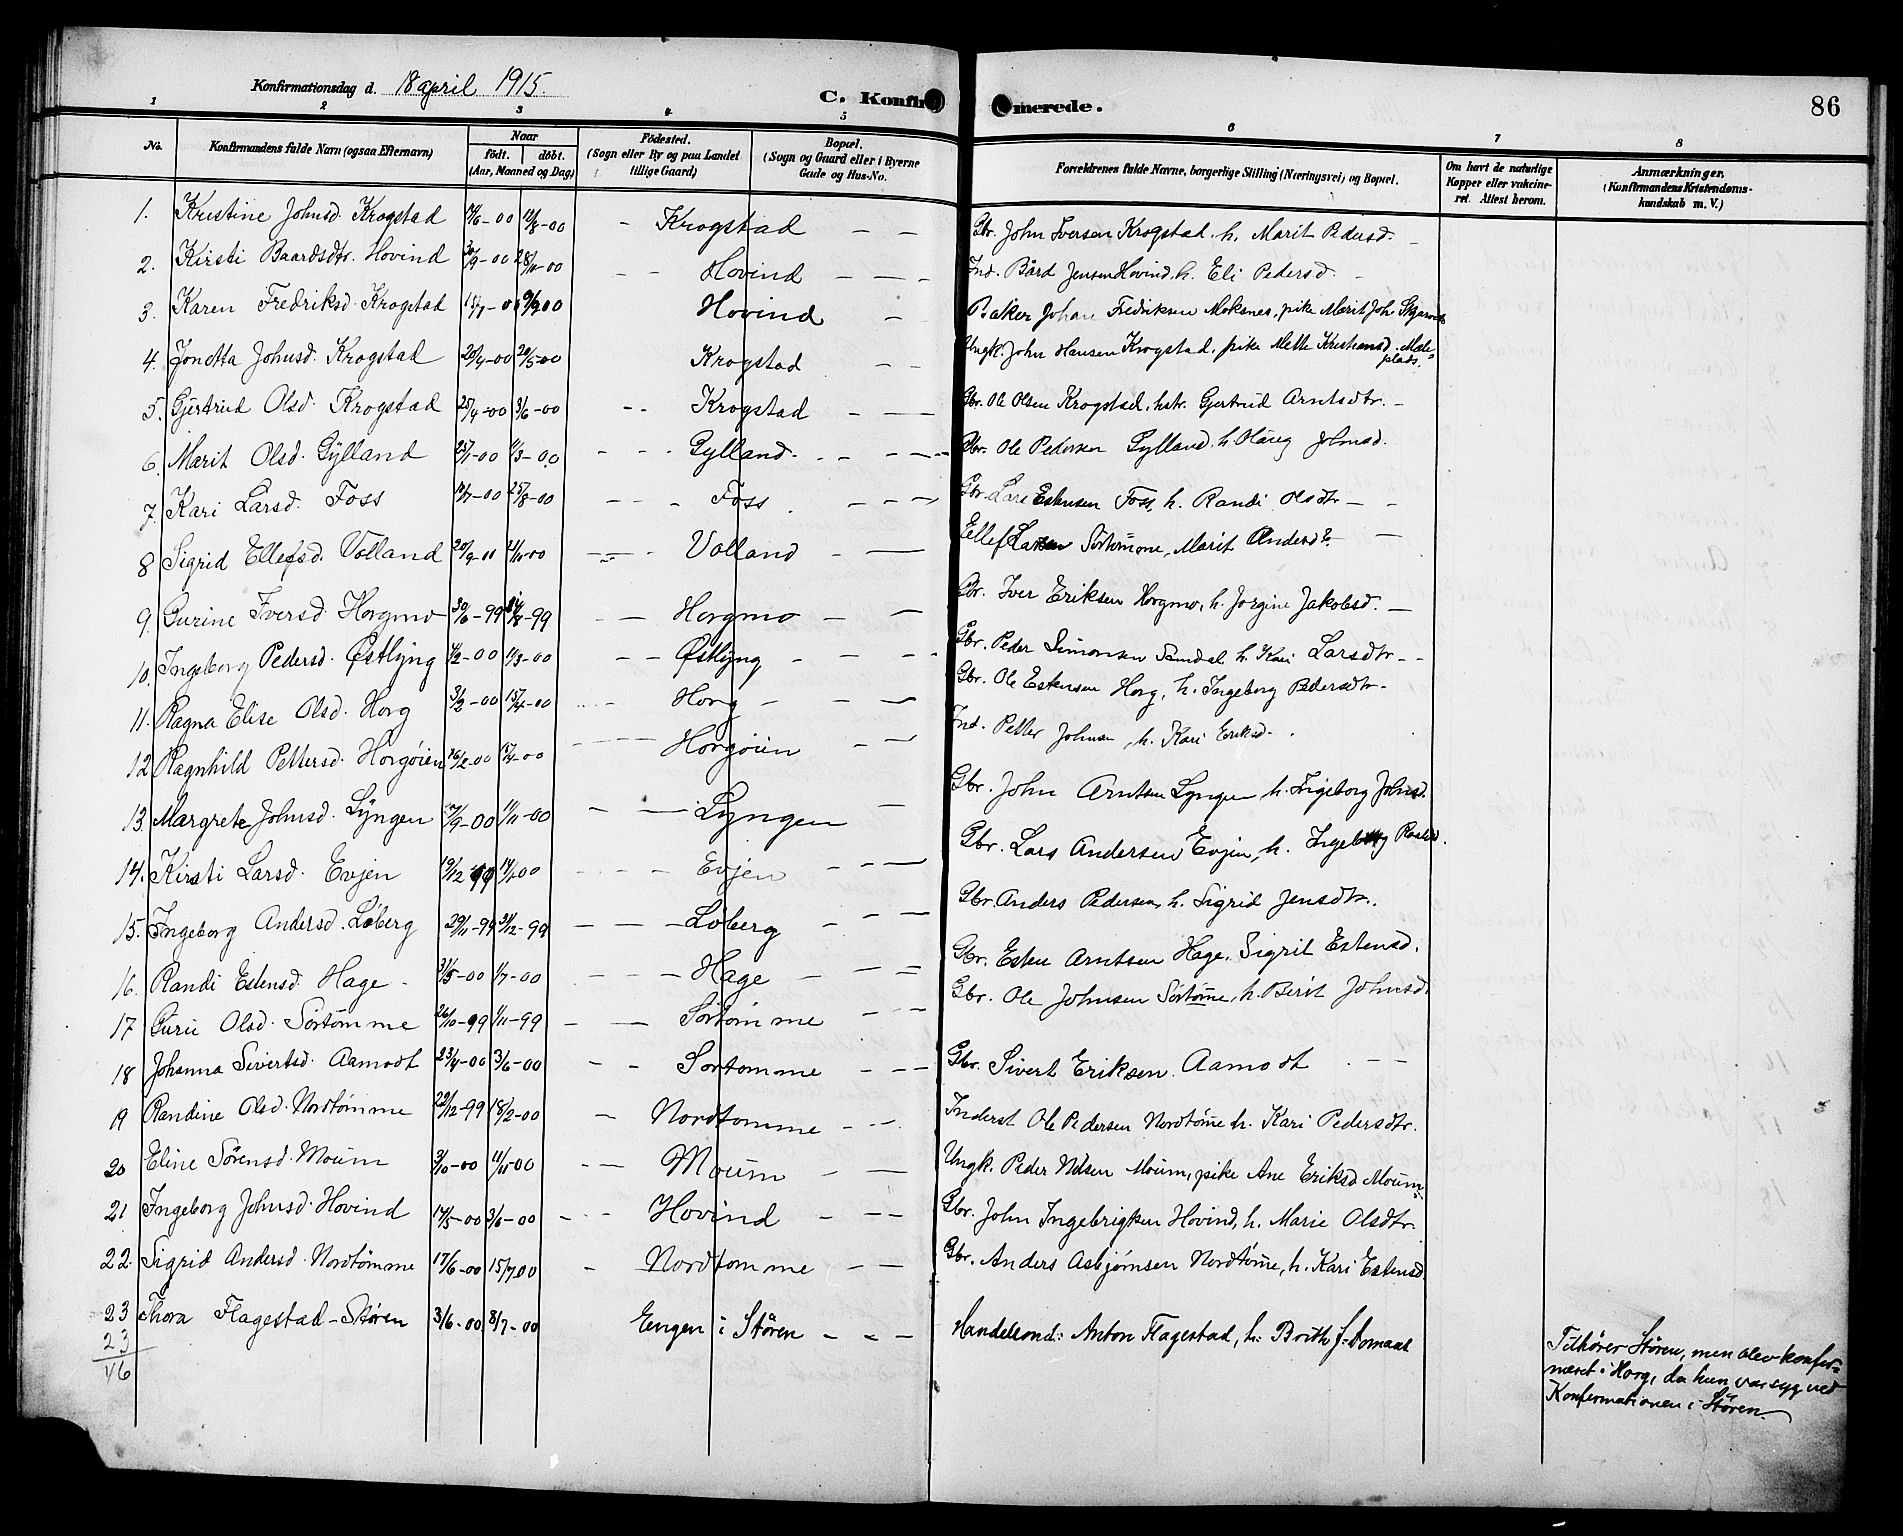 Konfirmationsdag d. 18 april 1915.
C. Konfirmerede.
86
1 2 3 4 5 6 7 8
No. Konfirmandens fulde Navn (ogsaa Efternavn) Naar födt. döbt. (Aar, Maaned og Dag) Födested. (Sogn eller By og paa Landet tillige Gaard) Bopæl. (Sogn og Gaard eller i Byerne Gade og Hus-No. Forældrenes fulde Navne, borgerlige Stilling (Næringsvei) og Bopæl. Om havt de naturlige Kopper eller vakcineret. Attest herom. Anmærkninger. (Konfirmandens Kristendomskundskab m. V.)
1. Kristine Johnsd. Krogstad /6-00 /8-00 Krogstad Gbr. John Iversen Krogstad, h. Marit Pedersd.
2. Kirsti Baardsdtr. Hovind 30/9-00 28/11-00 Hovind Ind. Bård Jensen Hovind, h. Eli Pedersd.
3. Karen Fredriksd. Krogstad 15/7-00 9/9 00 Hovind Baker Johan Fredriksen Moksnes, pike Marit Joh.
4. Jondtta Johnsd. Krogstad 20/4-00 20/5-00 Krogstad Ungk. John Hansen Krogstad, pike Mette Kristiansd. Mæleplads.
5. Gjertrud Olsd. Krogstad 25/4-00 3/6-00 Krogstad Gbr. Ole Olsen Krogstad, hstr. Gjertrud Arntsdtr.
6. Marit Olsd. Gylland 25/1-00 11/3-00 Gylland. Gbr. Ole Pedersen Gylland h. Olaug Johnsd.
7. Kari Larsd. Foss /7-00 25/8-00 Foss Gbr. Lars Estensen Foss, h. Randi Olsdtr
8 Sigrid Ellefsd. Volland 20/9-00 21/11-00 Volland Ellef Larsen Sörtömme, Marit Andersd.
9. Gurine Iversd. Horgmo 30/6-99 /8-99 Horgmo Gbr. Iver Eriksen Horgmo, h. Jorgine Jakobsd.
10. Ingeborg Pedersd. Østlyng 4/2-00 11/3-00 Østlyng Gbr. Peder Simonsen h. Kari Larsdtr
11. Ragna Elise Olsd. Horg 3/2-00 15/4-00 Horg Gbr. Ole Estensen Horg, h. Ingeborg Pedersdtr.
12 Ragnhild Pettersd. Horgöien 16/2-00 /4-00 Horgöien Ind. Petter Johnsen, h. Kari Eriksd.
13. Margrete Johnsd. Lyngen /9-00 11/11-00 Lyngen Gbr. John Arntsen Lyngen h. Ingeborg Johnsd.
14. Kirsti Larsd. Evjen 19/12 99 14/1 00 Evjen Gbr. Lars Andersen Evjen, h. Ingeborg
15. Ingeborg Andersd. Löberg 29/11-99 31/12-99 Löberg Gbr. Anders Pedersen, h. Sigrid Jensdtr.
16. Randi Estensd. Hage 31/5-00 1/7-00 Hage Gbr. Esten Arntsen Hage, Sigrit Estensd.
17 Guru Olsd. Sörtömme 26/10-99 1/11-99 Sörtömme Gbr. Ole Johnsen Sörtöm̅e, h. Berit Johnsd.
18 Johanna Sivertsd. Aamodt 23/4-00 3/6-00 Sörtömme Gbr. Sivert Eriksen Aamodt
19 Randine Olsd. Nordtömme 22/12-99 18/2-00 Nordtömme Inderst Ole Pedersen Nordtöm̅e h. Kari Pedersdtr.
20 Eline Sörensd. Moum 3/10-00 11/11-00 Moum Ungk. Peder Nilsen Moum, pike Ane Eriksd Moum
21 Ingeborg Johnsd. Hovind 14/5-00 3/6-00 Hovind Gbr. John Ingebrigtsen Hovind, h. Marie Olsdtr.
22. Sigrid Andersd. Nordtömme 17/6-00 15/7 00 Nordtömme Gbr. Anders Asbjørnsen Nordtøm̅e, h. Kari Estensd
23 Thora Flagestad-Støren 3/6-00 8/7-00 Engen i Støren Handelsmd: Anton Flagestad, h: Brith f. Domaas Tilhører Støren, men blev konfermeret i Horg, da hun var syg ved Konfermationen i Støren.
23
46